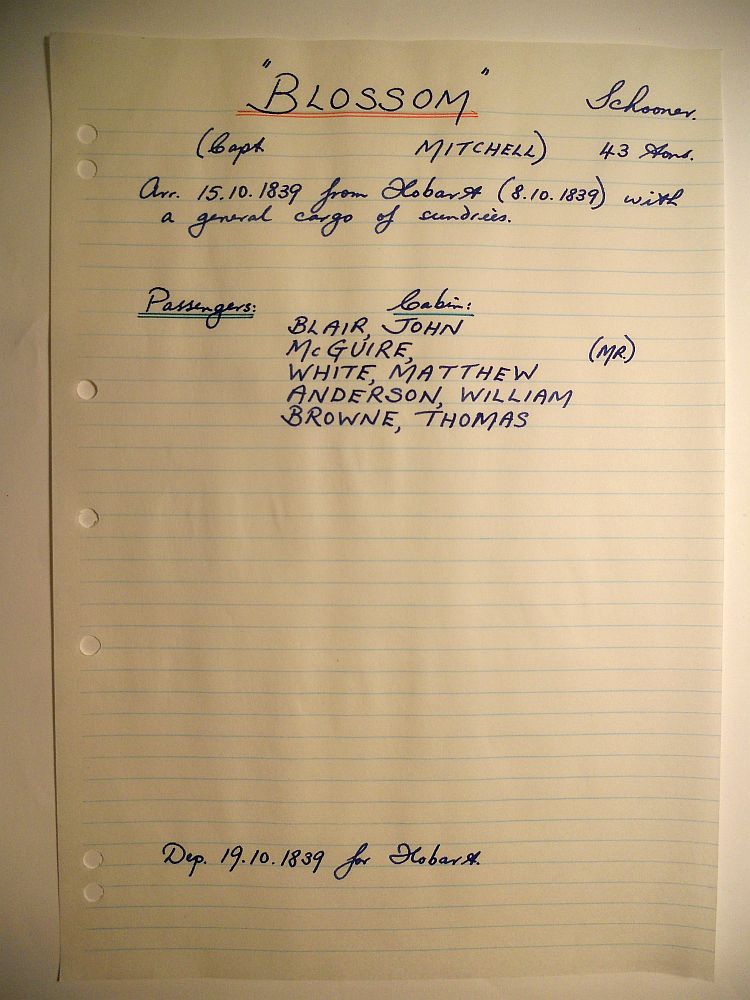 "BLOSSOM" Schooner.
(Capt MITCHELL) 43 tons.
Arr. 15.10.1839 from Hobart (8.10.1839) with
a general cargo of sundries.
Passengers: Cabin:
BLAIR, JOHN
McGUIRE, (MR.)
WHITE, MATTHEW
ANDERSON, WILLIAM
BROWNE, THOMAS
Dep. 19.10.1839 for Hobart.